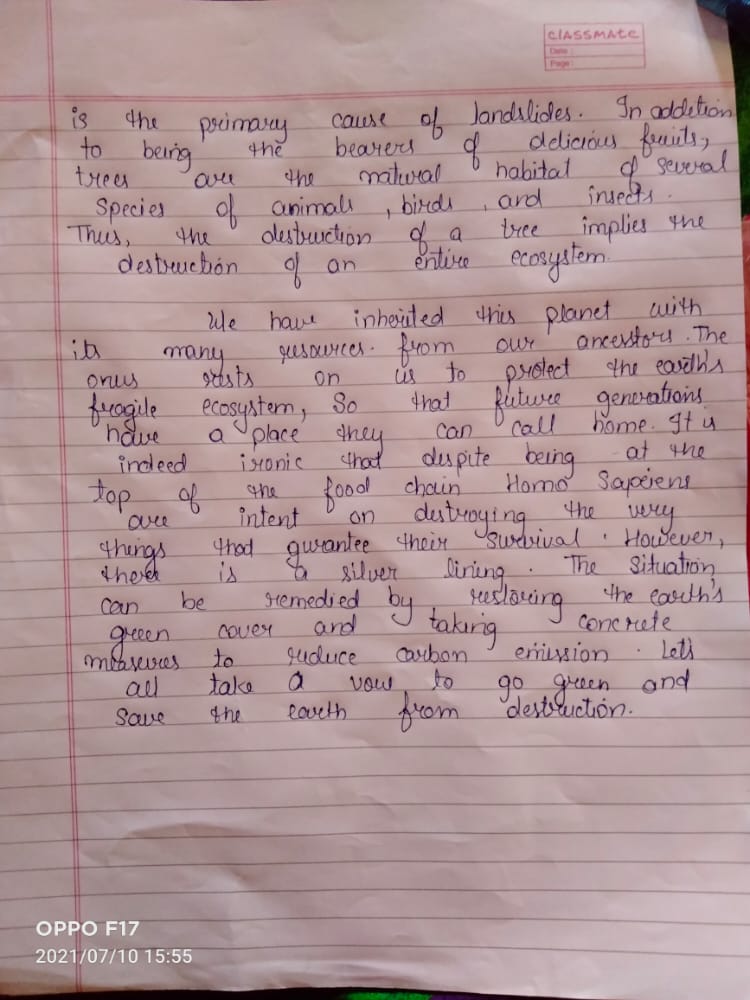 CLASSMATE
Date :
Page :
is the primary cause of landslides. In addetion
to being the bearers of delicious fruits,
trees are the natural habital of several
Species of animals , birds , and insects.
Thus, the destruction of a tree implies the
destruction of an entire ecosystem.
We have inherited this planet with
its many resources. from our ancestors. The
onus rests on us to protect the earth's
fragile ecosystem, So that future generations
have a place they can call home. It is
indeed ironic that despite being at the
top of the food chain Homo Sapeiens
are intent on destroying the very
things that gurantee their survival. However,
there is a silver lining. The Situation
can be remedied by restoring the earth's
green cover and taking concrete
measures to reduce carbon emission. Let's
all take a vow to go green and
Save the earth from destruction.
OPPO F17
2021/07/10 15:55